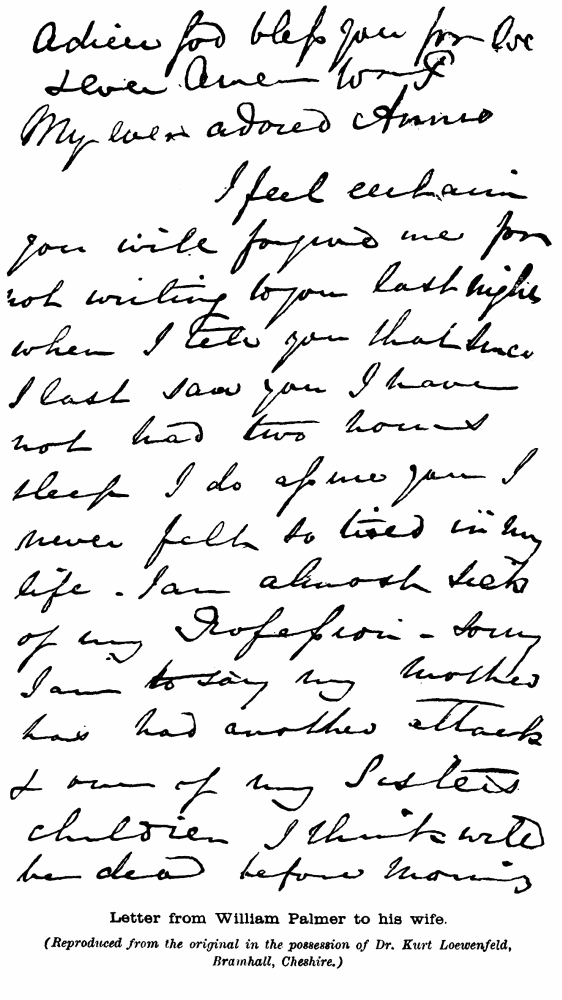 Adieu God bless you for
& ever Amen Wm P
My ever adored Annie
I feel certain
you will forgive me for
not writing to you last night
when I tell you that since
I last saw you I have
not had two hours
sleep I do assure you I
never felt so tired in my
life - I am almost sick
of my Profession - Sorry
I am to say my Mother
has had another attack
& one of my Sisters
children I think will
be dead before Morning
Letter from William Palmer to his wife.
(Reproduced from the original in the possession of Dr. Kurt Loewenfeld,
Bramhall, Cheshire.)